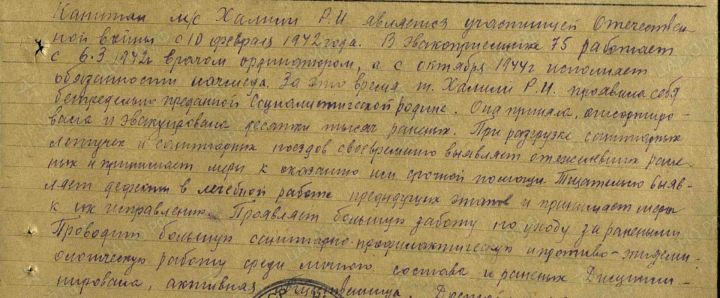 Капитан м/с Халиши Р.И. является участницей Отечествен-
ной войны с 10 февраля 1942 года. В Эвакоприемнике 75 работает
с 6.3.1942г. врачом ординатором, а с октября 1944г исполняет
обязанности начмеда. За это время т. Халиши Р.И. проявила себя
беспредельно преданной Социалистической родине. Она приняла, отсортиро-
вала и эвакуировала десятки тысяч раненых. При разгрузке санитарных
летучек и санитарных поездов своевременно выявляет отяжелевших ране-
ных и принимает меры к оказанию им срочной помощи. Тщательно выяв-
ляет дефекты в лечебной работе предыдущих этапов и принимает меры
к их исправлению. Проявляет большую заботу по уходу за ранеными
Проводит большую санитарно-профилактическую и противо-эпидеми-
ологическую работу среди личного состава и раненых Дисципли-
нирована, активная общественница. Достойна